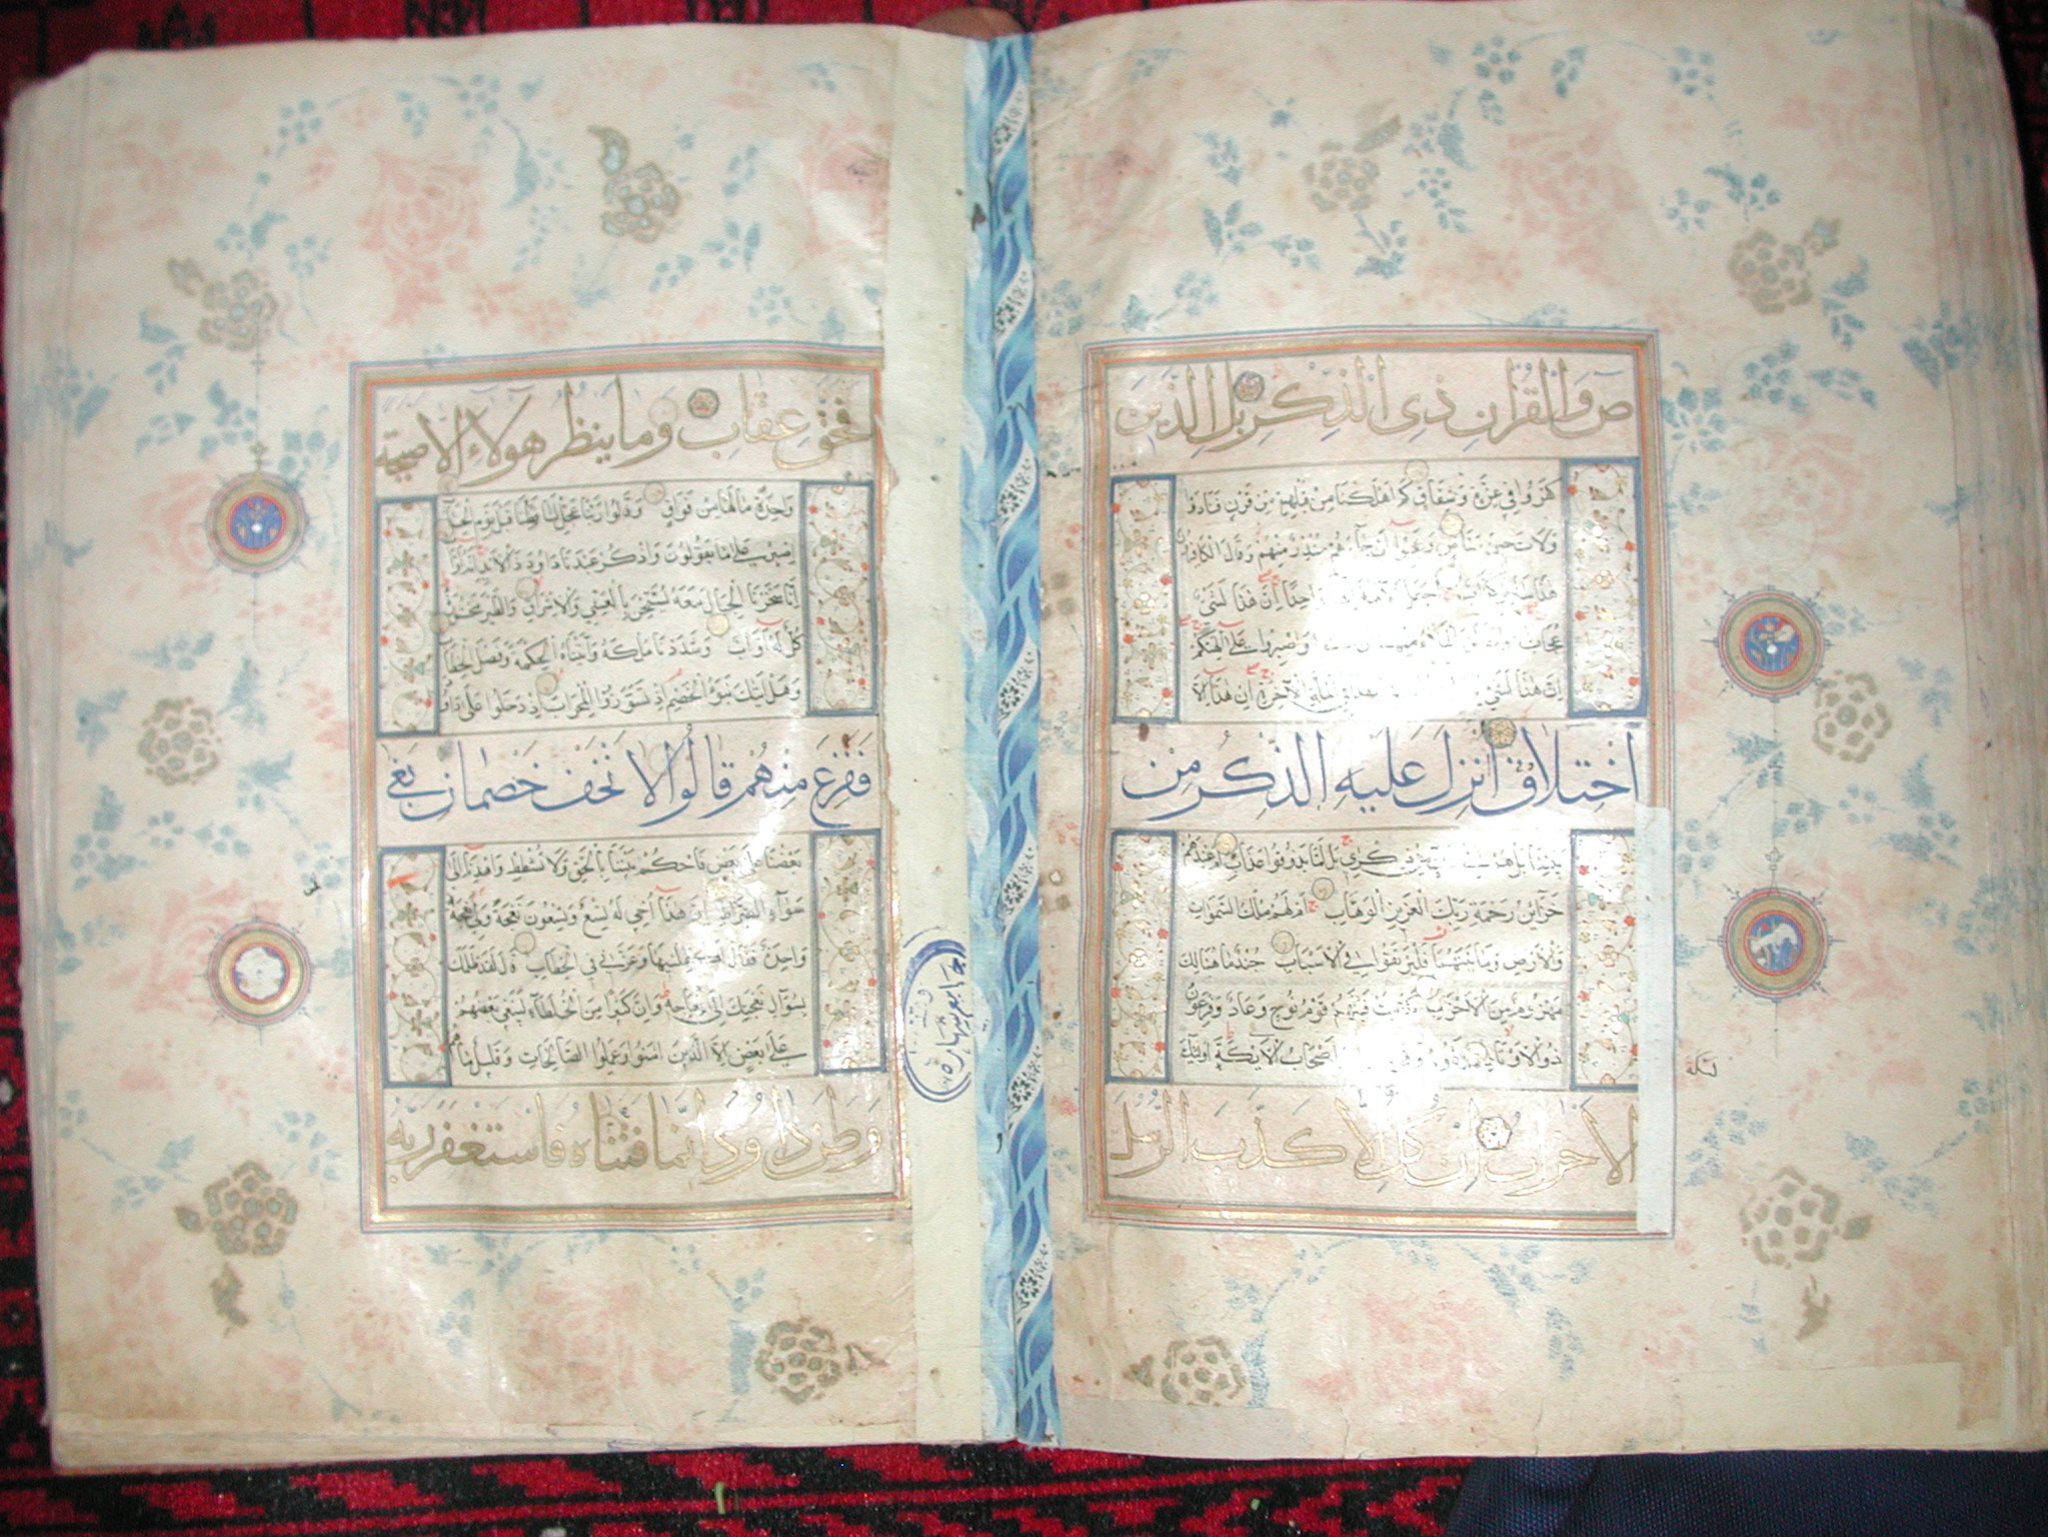 ص وَالْقُرْآنِ ذِي الذِّكْرِ بَلِ الَّذِينَ
كفروا في عزة وشقاق كم اهلكنا من قبلهم من قرن فنادوا
ولات حين مناص وعجبوا ان جاءهم منذر منهم وقال الكافرون
هذا ساحر كذاب اجعل الالهة واحدا ان هذا لشئ
عجاب وانطلق الملاء منهم ان واصبروا على الهتكم
ان هذا لشئ بهذا في الملة الآخرة ان هذا الا
اختلاق أنزل عليه الذكر من
بيننا بل هم في من ذكري بل لما يذوقوا عذاب ام عندهم
خزائن رحمة ربك العزيز الوهاب ام لهم ملك السموات
والارض وما بينهما فليرتقوا في الاسباب جند ما هنالك
مهزوم من الاحزاب كذبت قبلهم قوم نوح وعاد وفرعون
ذو الاوتاد وثمود وقوم اصحاب الايكة اولئك
الاحزاب ان كل الا كذب الرسل
ليكة
فحق عقاب وما ينظر هولاء الا صيحة
واحدة ما لها من فواق وقالوا ربنا عجل لنا قطنا قبل يوم الحساب
اصبر على ما يقولون واذكر عبدنا داود ذا الايد انه اواب
انا سخرنا الجبال معه يسبحن بالعشي والاشراق والطير محشورة
كل له اواب وشددنا ملكه وآتيناه الحكمة وفصل الخطاب
وهل اتيك نبوء الخصم اذ تسوروا المحراب اذ دخلوا على داود
ففزع منهم قالوا لا تخف خصمان بغى
بعضنا على بعض فاحكم بيننا بالحق ولا تشطط واهدنا الى
سواء الصراط ان هذا اخي له تسع وتسعون نعجة ولي نعجة
واحدة فقال اكفلنيها وعزني في الخطاب قال لقد ظلمك
بسؤال نعجتك الى نعاجه وان كثيرا من الخلطاء ليبغي بعضهم
على بعض الا الذين امنوا وعملوا الصالحات وقليل ما هم
وظن داود انما فتناه فاستغفر ربه